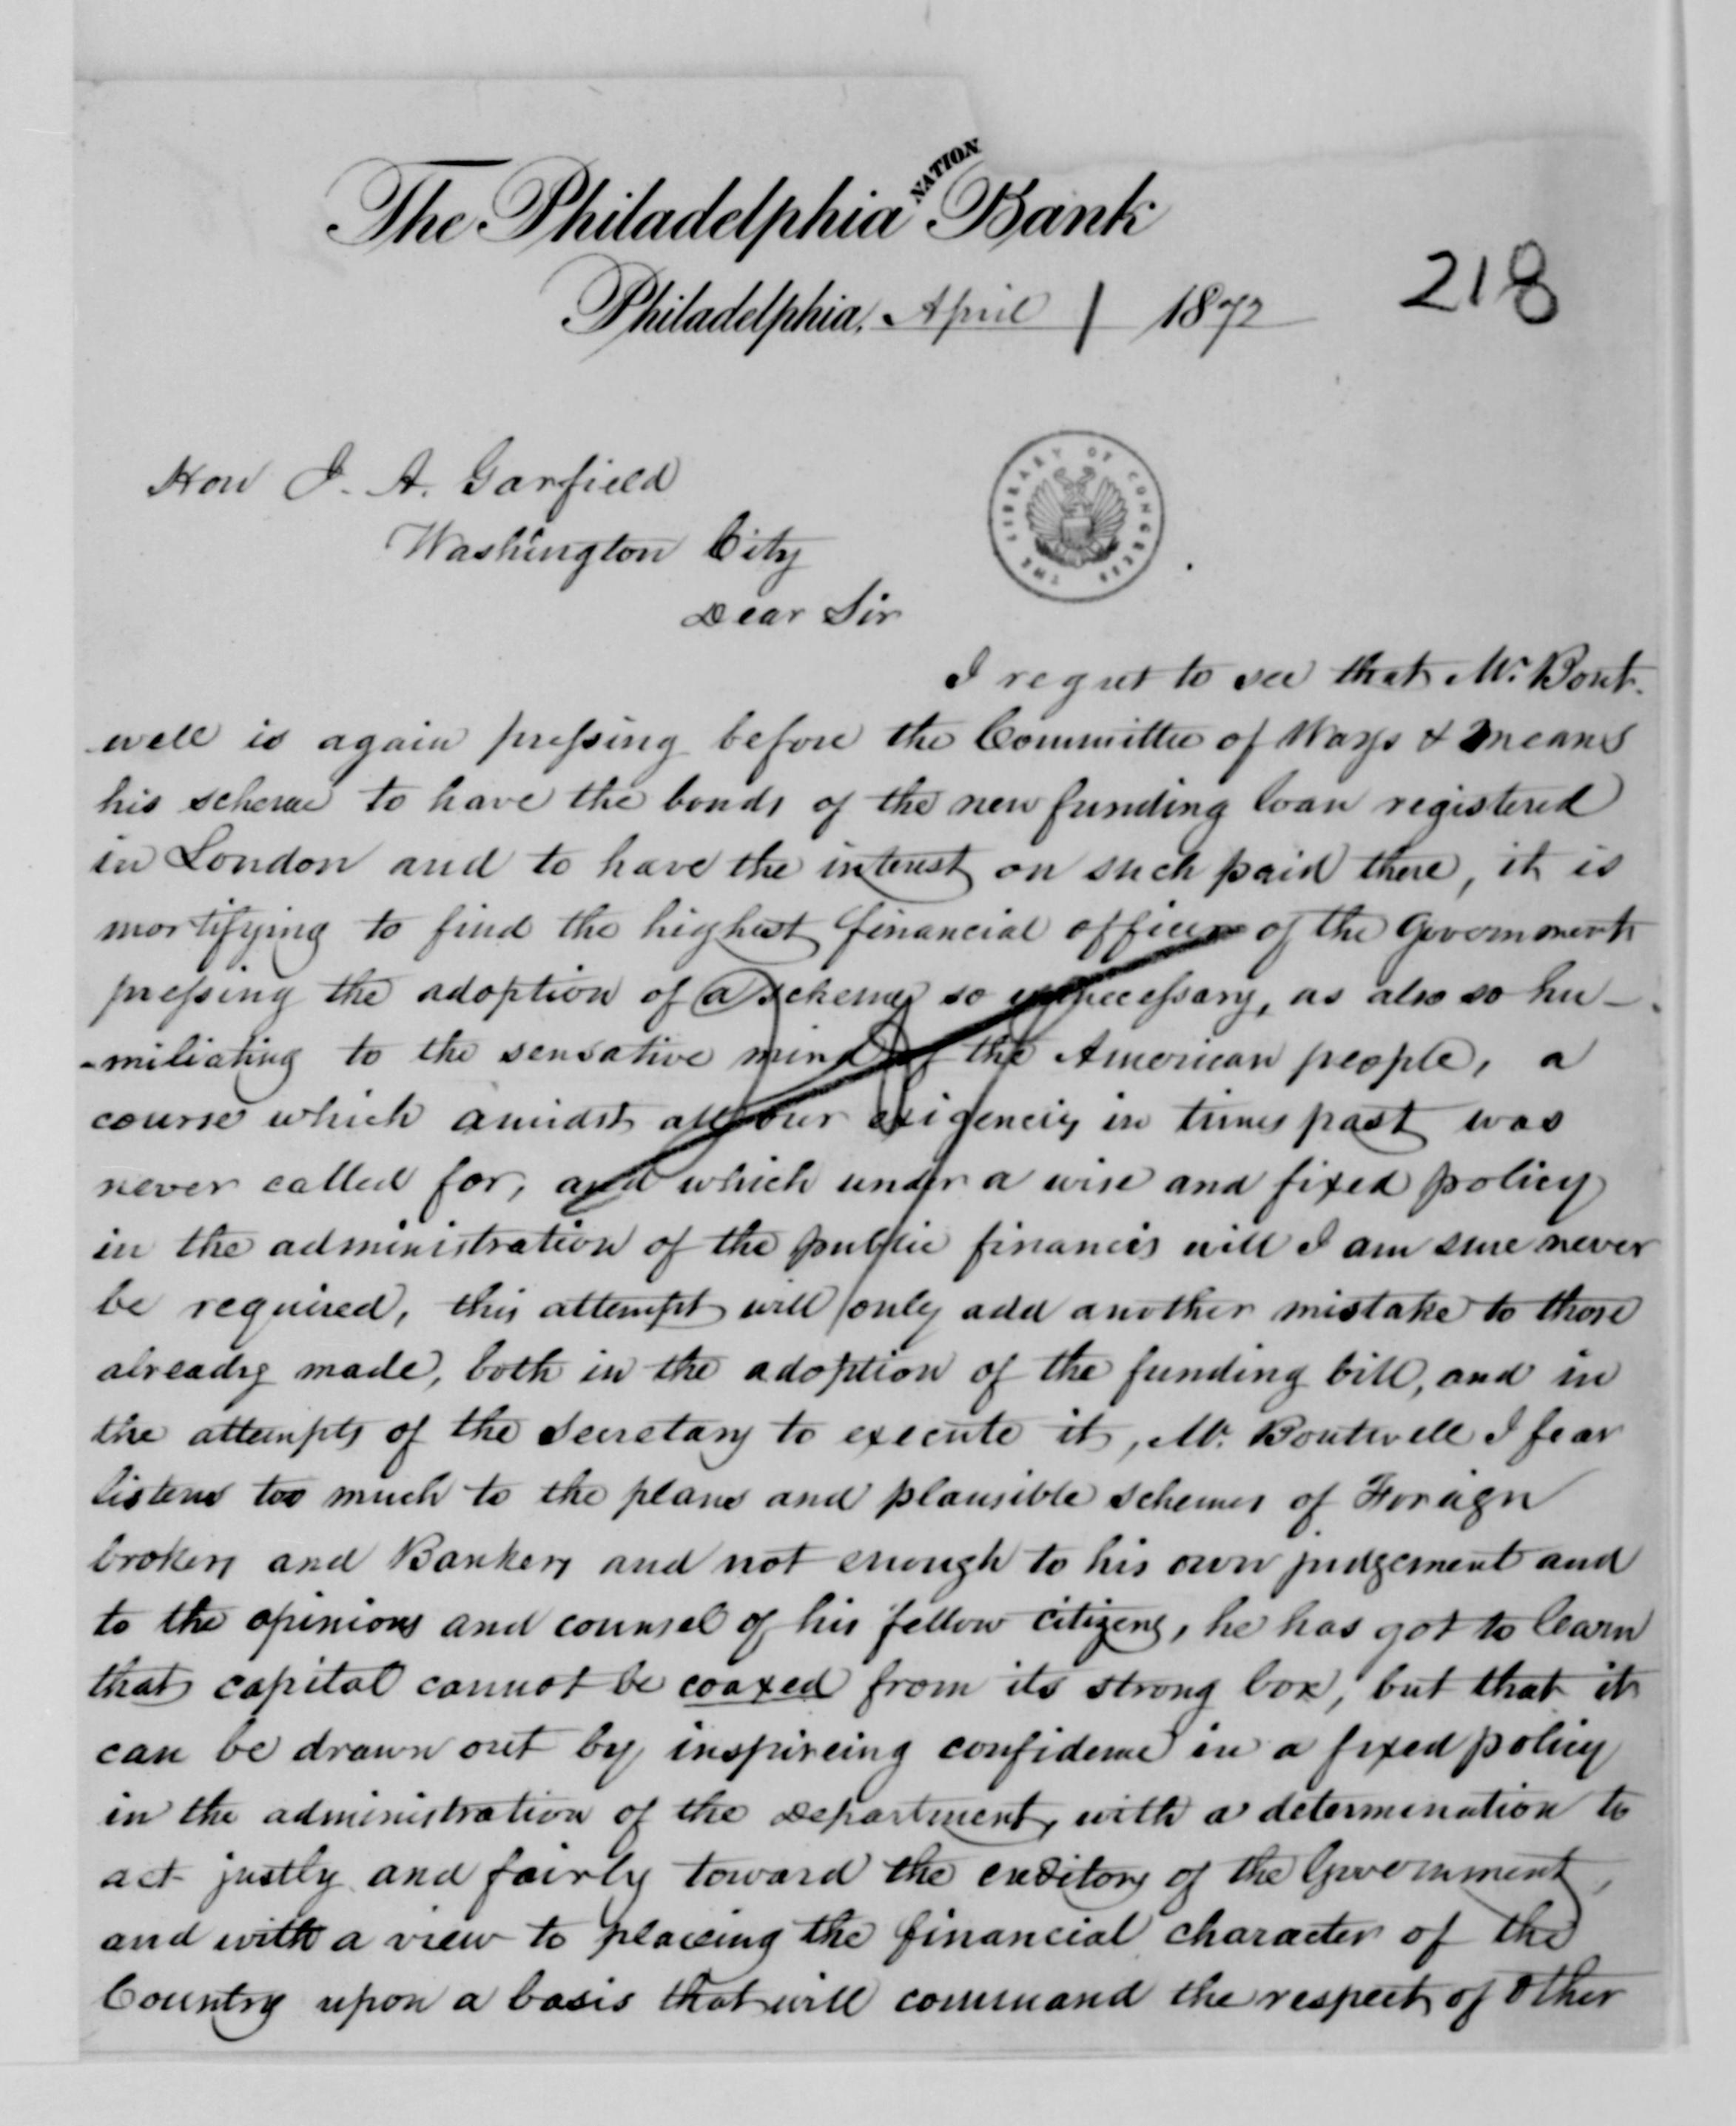 The Philadelphia NATION Bank
218
Philadelphia, April 1 1872
THE LIBRARY OF CONGRESS
Hon J. A. Garfield
Washington City
Dear Sir
I regret to see that Mr. Bout-
-well is again pressing before the Committee of Ways & Means
his scheme to have the bonds of the new funding loan registered
in London and to have the interest on such paid there, it is
mortifying to find the highest financial officer of the Government
pressing the adoption of a scheme so unnecessary, as also so hu-
-miliating to the sensative mind of the American people, a
course which amidst all our exigencies in times past was
never called for, and which under a wise and fixed policy
in the administration of the public finances will I am sure never
be required, this attempt will only add another mistake to those
already made, both in the adoption of the funding bill, and in
the attempts of the Secretary to execute it, Mr. Boutwell I fear
listens too much to the plans and plausible schemes of Foreign
brokers and Bankers and not enough to his own judgement and
to the opinions and counsel of his fellow citizens, he has got to learn
that capital cannot be coaxed from its strong box, but that it
can be drawn out by inspireing confidence in a fixed policy
in the administration of the Department, with a determination to
act justly and fairly toward the creditors of the Government,
and with a view to placeing the financial character of the
Country upon a basis that will command the respect of other